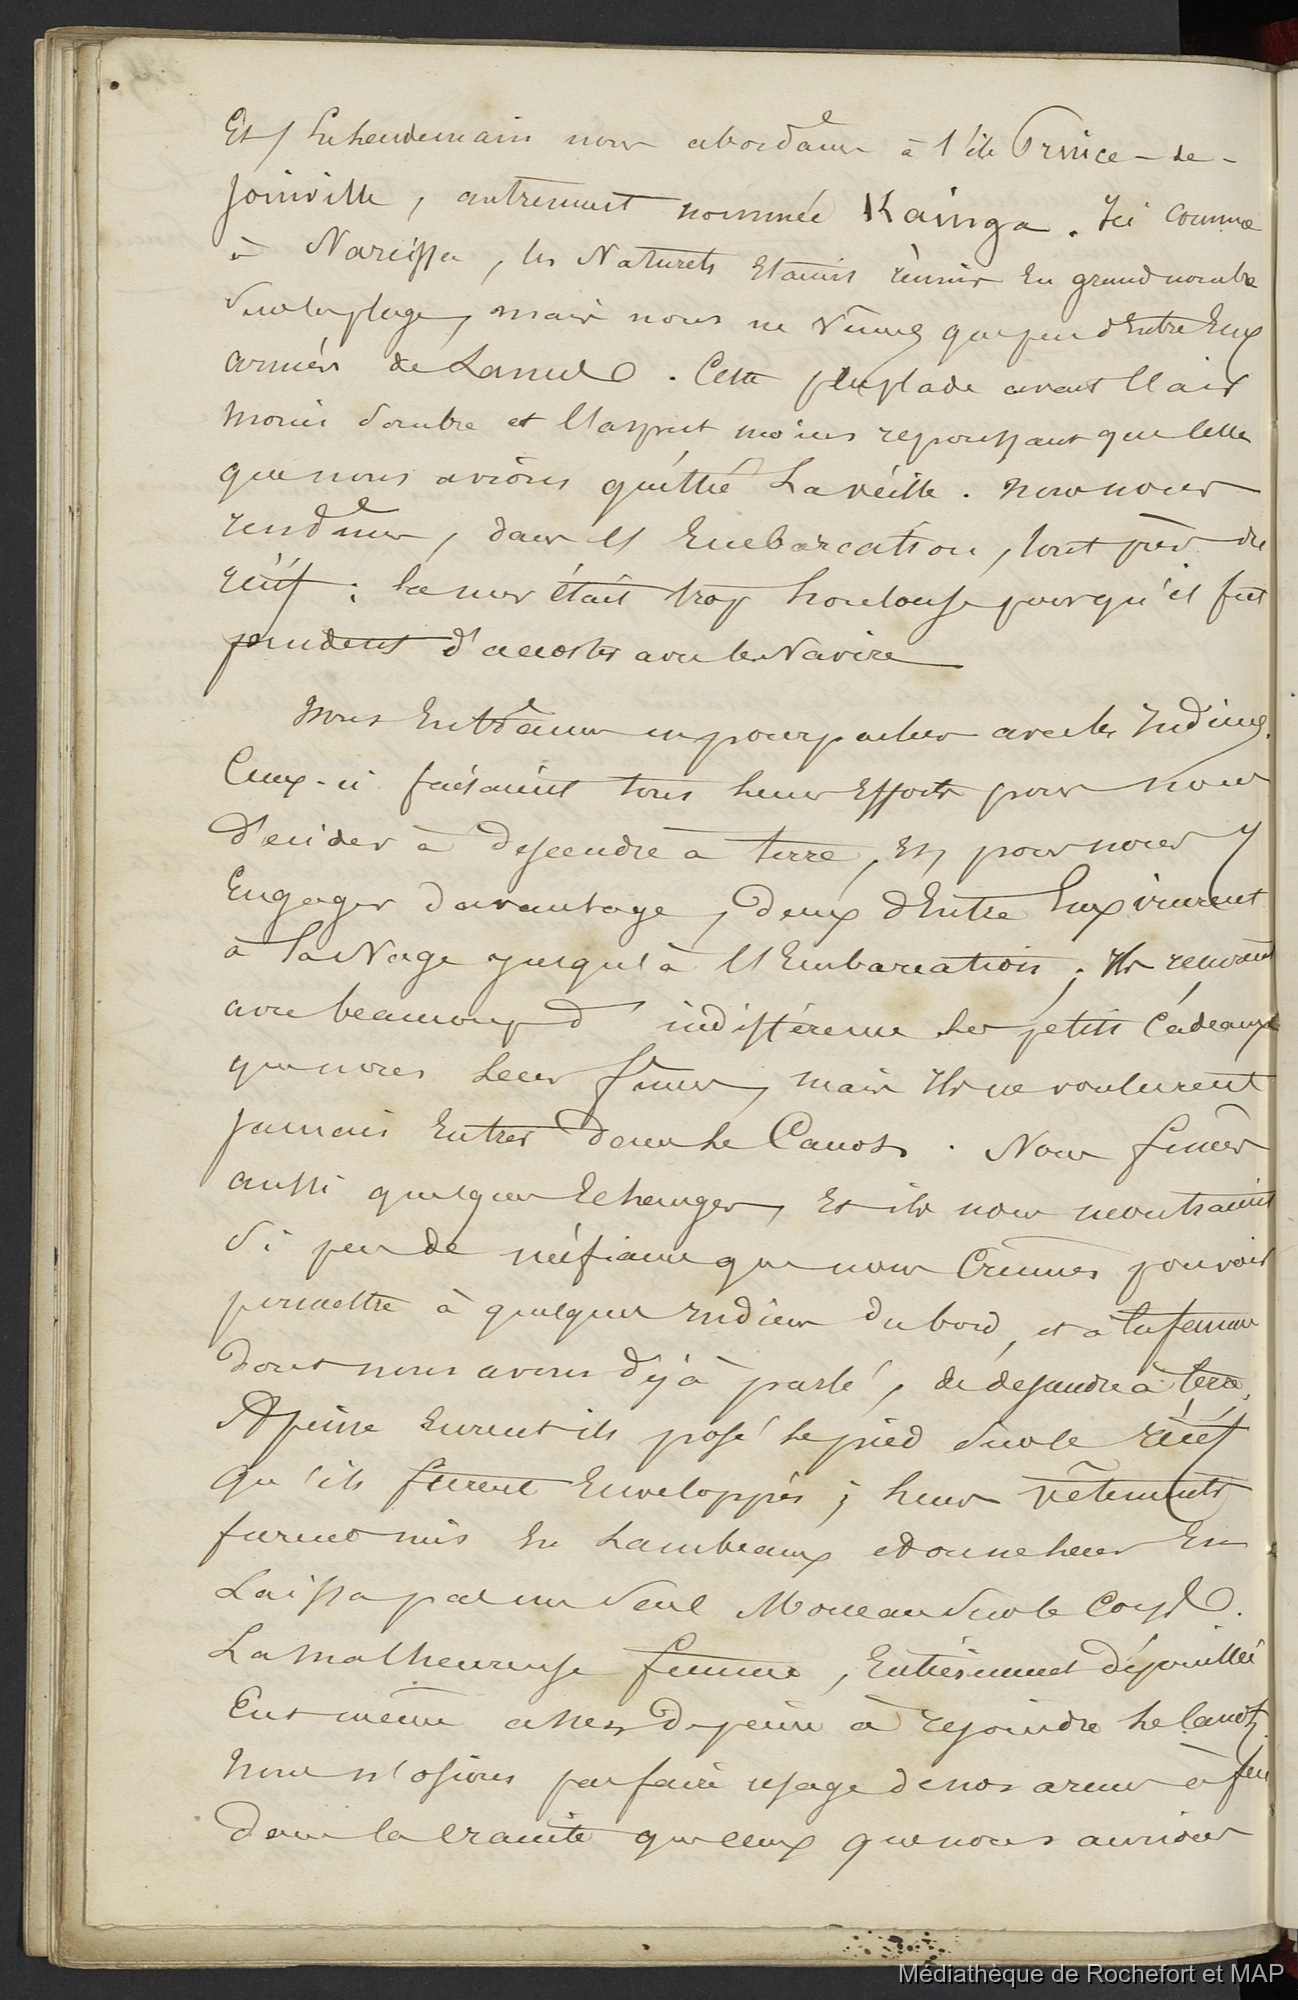 Et, Le lendemain nous abordâmes à l'ile Prince-de-
Joinville, autrement nommée Kainga. Ici comme
à Narcissa, les Naturels étaient réunis En grand nombre
sur la plage, mais nous ne vîmes que peu d'Entre Eux
armés de Lances. Cette peuplade avait l'air
moins sombre et l'aspect moins repoussant que celle
que nous avions quittée La veille. nous nous
rendîmes, dans l'Embarcation, tout près du
récif; la mer était trop houleuse pour qu'il fut
prudent d'accoster avec le Navire
Nous Entrâmes en pourparlers avec les Indiens.
Ceux-ci faisaient tous leurs Efforts pour nous
décider à descendre à terre, Et, pour nous y
Engager davantage, deux d'Entre Eux vinrent
à la Nage jusqu'à l'Embarcation. Ils reçurent
avec beaucoup d'indifférence les petits Cadeaux
que nous leur fîmes, mais Ils ne voulurent
jamais Entrer dans le Canot. Nous fîmes
aussi quelques Echanges, Et ils nous montraient
si peu de méfiance que nous Crûmes pouvoir
permettre à quelques indiens du bord, et à la femme
dont nous avons déjà parlé, de descendre à terre.
A peine Eurent ils posé le pied sur le récif
qu'ils furent Enveloppés; leurs vêtements
furent mis En Lambeaux et on ne leur En
Laissa pas un seul Morceau sur le Corps.
La malheureuse femme, Entièrement dépouillée
Eut même assez de peine à rejoindre le Canot.
Nous n'osions pas faire usage de nos armes à feu
dans la crainte que ceux que nous aurions
Médiathèque de Rochefort et MAP